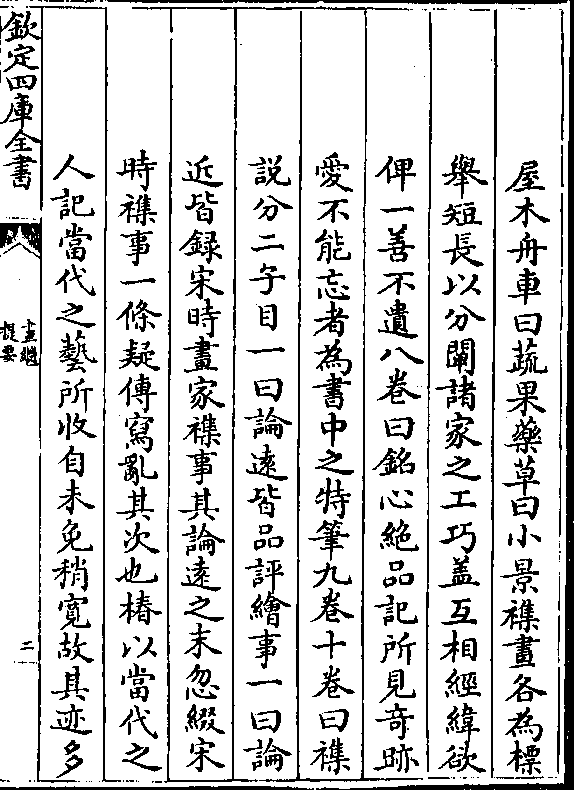 屋木舟車曰蔬果藥草曰小景襍畫各為標
舉短長以分闡諸家之工巧盖互相經緯欲
俾一善不遺八卷曰銘心絶品記所見奇跡
愛不能忘者為書中之特筆九卷十卷曰襍
説分二子目一曰論遠皆品評繪事一曰論
近皆録宋時畫家襍事其論遠之末忽綴宋
時襍事一條疑傳寫亂其次也椿以當代之
人記當代之藝所收自未免稍寛故其迹多
欽定四庫全書
畫繼
提要
二